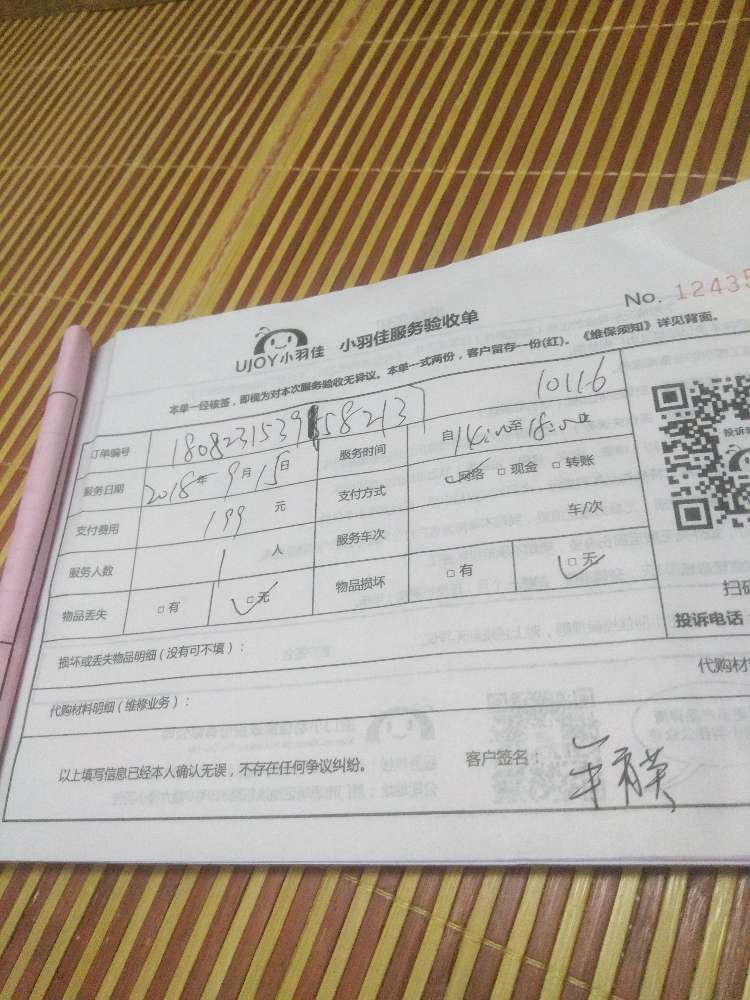 No. 12435
UJOY小羽佳 小羽佳服务验收单
本单一经核签，即视为对本次服务验收无异议。本单一式两份，客户留存一份(红)。《维保须知》详见背面。
订单编号 180823153958213 10116
服务日期 2018年9月15日 服务时间 自14:00至18:00
支付费用 199元 支付方式 网络 □现金 □转账
服务人数 1人 服务车次 车/次
物品丢失 □有 □无 物品损坏 □有 □无
损坏或丢失物品明细（没有可不填）：
代购材料明细（维修业务）： 代购材
以上填写信息已经本人确认无误，不存在任何争议纠纷。 客户签名：
投诉
扫码
投诉电话